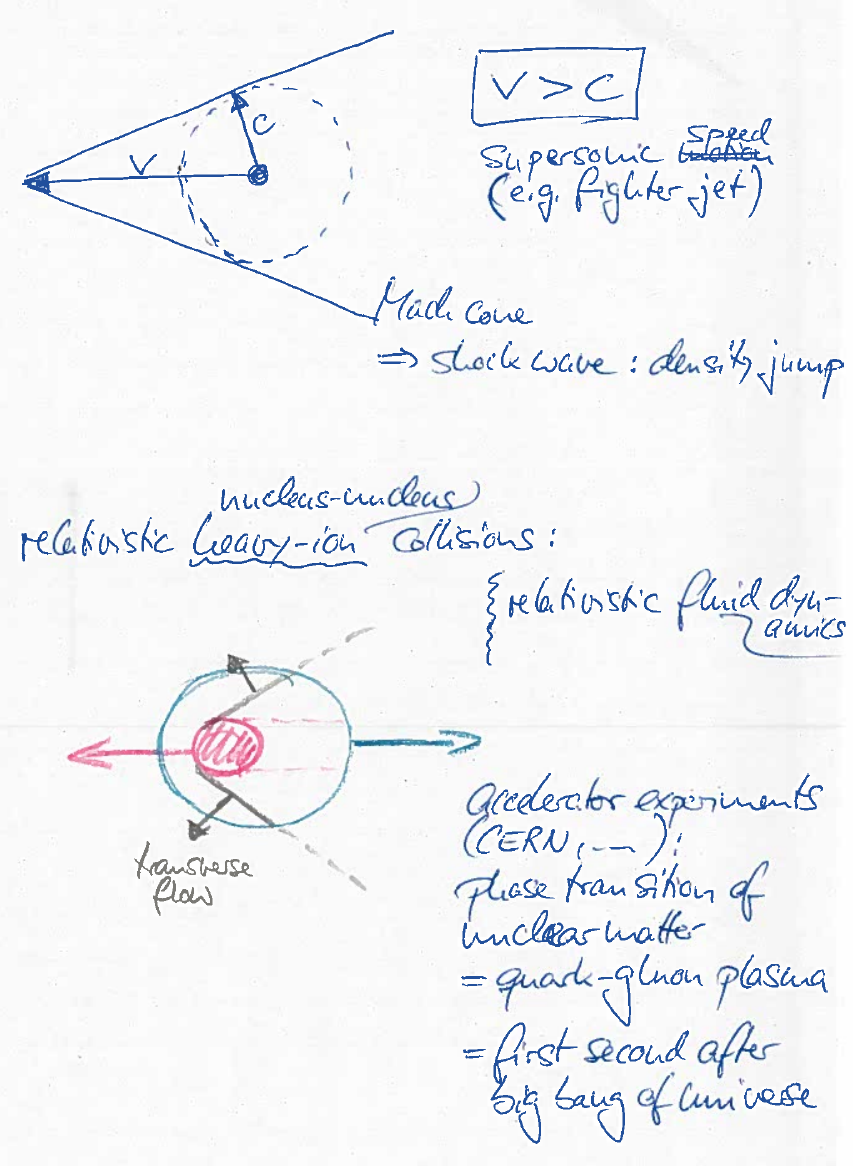 V > C
c
V
speed
Supersonic motion
(e.g. fighter jet)
Mach cone
⇒ shock wave : density jump
nucleus-nucleus
relativistic heavy-ion collisions :
relativistic fluid dyn-
amics
transverse
flow
accelerator experiments
(CERN, ...):
phase transition of
nuclear matter
= quark-gluon plasma
= first second after
big bang of universe